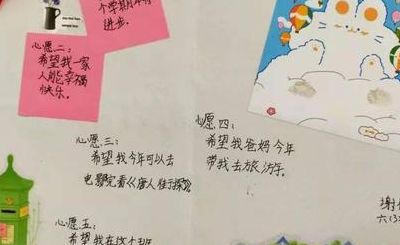 个学期中有
进步。
心愿二：
希望我一家
人能幸福
快乐。
心愿三：
希望我今年可以去
电影院看《唐人街探案》
心愿四：
希望我爸妈今年
带我去旅游。
谢
六（3
心愿五：
希望我在这个班